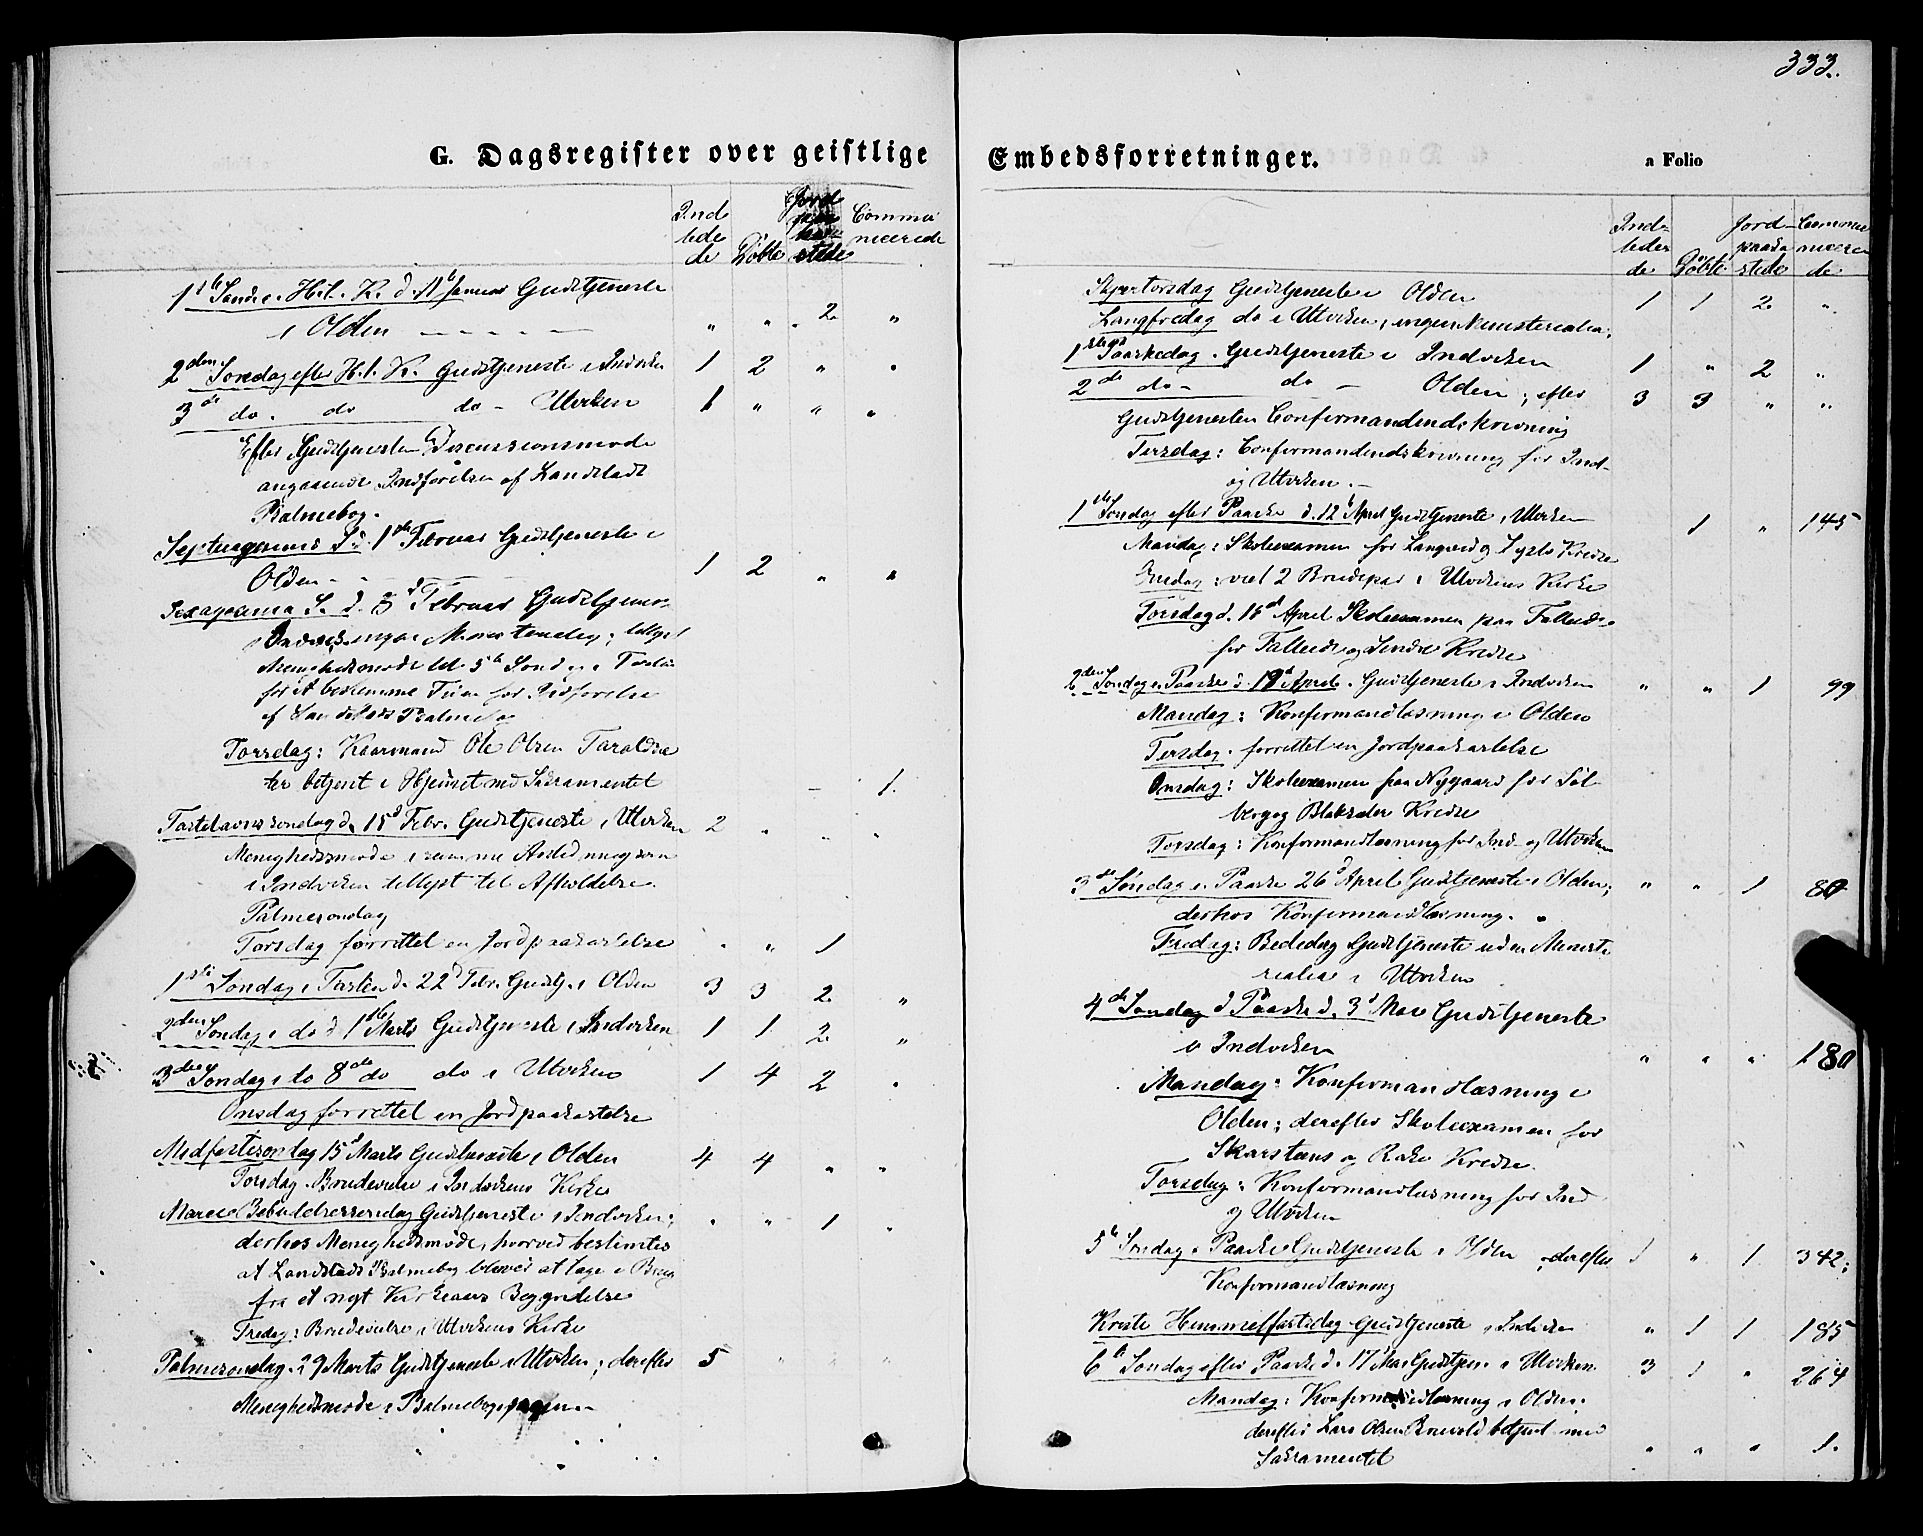 333.
G. Dagsregister over geistlige
Ind
bede
de
Döbte
Jord
paa
kas
stede
Commu
nicerede
1ste Sönd. e. H. 3. K. d. 11te Januar Gudstjeneste
i Olden — — — — — " " " 2 "
2den Söndag efter H. 3. K. Gudstjeneste i Indviken 1 2 " "
3de do. do do - Utviken 1 " " "
Efter Gudstjenesten Discussionsmöde
angaaende Indförelsen af Landstads
Psalmebog.
Septuagesima S. 1ste Februar Gudstjeneste i
Olden - - - 1 2 " "
Sexagesima S. d. 8d Februar Gudstjeneste
Menighedsmöde til 5te Söndag i Faste
for at bestemme Tiden for Indförelse
af Landstads Psalmebog
Torsdag: Kaarmand Ole Olsen Taraldsæ
ter betjent i Hjemmet med Sakramentet - 1.
Fastelavnssöndag d. 15d Febr. Gudstjeneste i Utviken 2 " " "
Menighedsmöde i samme Anledning som
i Indviken tillyst til Afholdelse
Palmesöndag
Torsdag forrettet en Jordpaakastelse " " 1
1ste Söndag i Fasten d. 22d Febr. Gudstj. i Olden 3 3 2 "
2den Söndag i do d 1ste Marts Gudstjeneste i Indviken 1 1 2 "
3die Söndag i do 8de do do i Utviken 1 4 2 "
Onsdag forrettet en Jordpaakastelse
Midfastesöndag 15d Marts Gudstjeneste i Olden 4 4 " "
Torsdag. Brudevielse i Indvikens Kirke
Mariæ Bebudelsessöndag Gudstjeneste i Indviken; " " 1 "
derhos Menighedsmöde, hvorved bestemtes
at Landstads Psalmebog bleved at tage i Brug
fra et nyt Kirkeaars Begyndelse
Fredag: Brudevielse i Utvikens Kirke
Palmesöndag. 29 Marts Gudstjeneste i Utviken; derefter 5 " " "
Menighedsmöde i Psalmebogssagen
Embedsforretninger.
a Folio
Ind-
beder
de
Döbte
Jord-
paaka
stede
Commu
niceren
de
Skjærtorsdag Gudstjeneste i Olden 1 1 2 "
Langfredag do i Utviken, ingen Ministerialia.
1ste Paaskedag. Gudstjeneste i Indviken 1 " 2 "
2de do - do - Olden; efter 3 3 " "
Gudstjenesten Confirmandindskrivning
Tirsdag: Confirmandindskrivning for Ind-
og Utviken. -
1ste Söndag efter Paaske d. 12te April Gudstjeneste i Utviken 1 " 145
Mandag: Skoleexamen for Langvin og Tysla Kredse
Onsdag: viet 2 Brudepar i Utvikens Kirke
Torsdag d. 16d April Skoleexamen paa Falleide
for Falleide og Söndre Kredse
2den Söndag e. Paaske d. 19d April. Gudstjeneste i Indviken " " 1 99
Mandag: Konfirmandlæsning i Olden
Tirsdag. forrettet en Jordpaakastelse
Onsdag: Skoleexamen paa Nygaard for Söl
berg og Blaksæter Kredse
Torsdag: Konfirmandlæsning for Ind- og Utviken
3de Söndag e. Paaske 26d April Gudstjeneste i Olden; " " 1 80
derhos Konfirmandlæsning.
Fredag: Bededag Gudstjeneste uden Ministe
rialia i Utviken
4de Söndag e Paaske d. 3d Mai Gudstjeneste
i Indviken " " " 180
Mandag: Konfirmandlæsning i
Olden; derefter Skoleexamen for
Skarstens og Rake Kredse.
Torsdag: Konfirmandlæsning for Ind
og Utviken
5te Söndag e Paaske Gudstjeneste i Olden derefter 1 " 1 342;
Konfirmandlæsning
Kristi Himmelfartsdag Gudstjeneste i Indviken " 1 1 185
6te Söndag efter Paaske d. 17d Mai Gudstjen. i Utviken. 3 1 " 264
Mandag: Konfirmandlæsning i Olden.
derefter Lars Olsen betjent med
Sakramentet " " " 1.